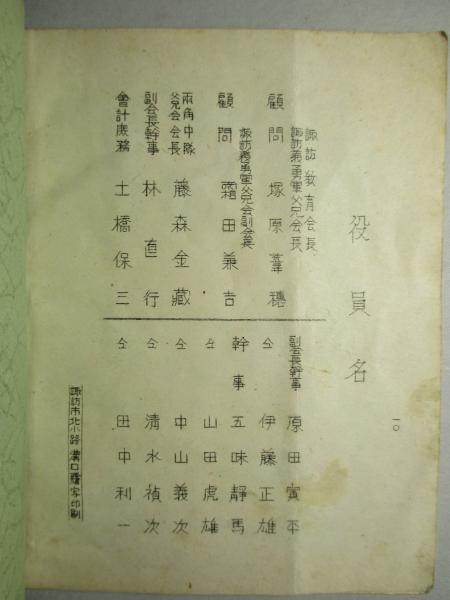 役員名
諏訪教育会長
諏訪義勇軍父兄会長
顧問 塚原葦穂
諏訪義勇軍父兄会副会長
顧問 霜田兼吉
両角中隊
父兄会会長 藤森金藏
副会長幹事 林直行
會計庶務 土橋保三
副会長幹事 原田寅平
仝 伊藤正雄
幹事 五味靜馬
仝 山田虎雄
仝 中山義次
仝 清水禎次
仝 田中利一
一〇
諏訪市北小路 溝口謄写印刷